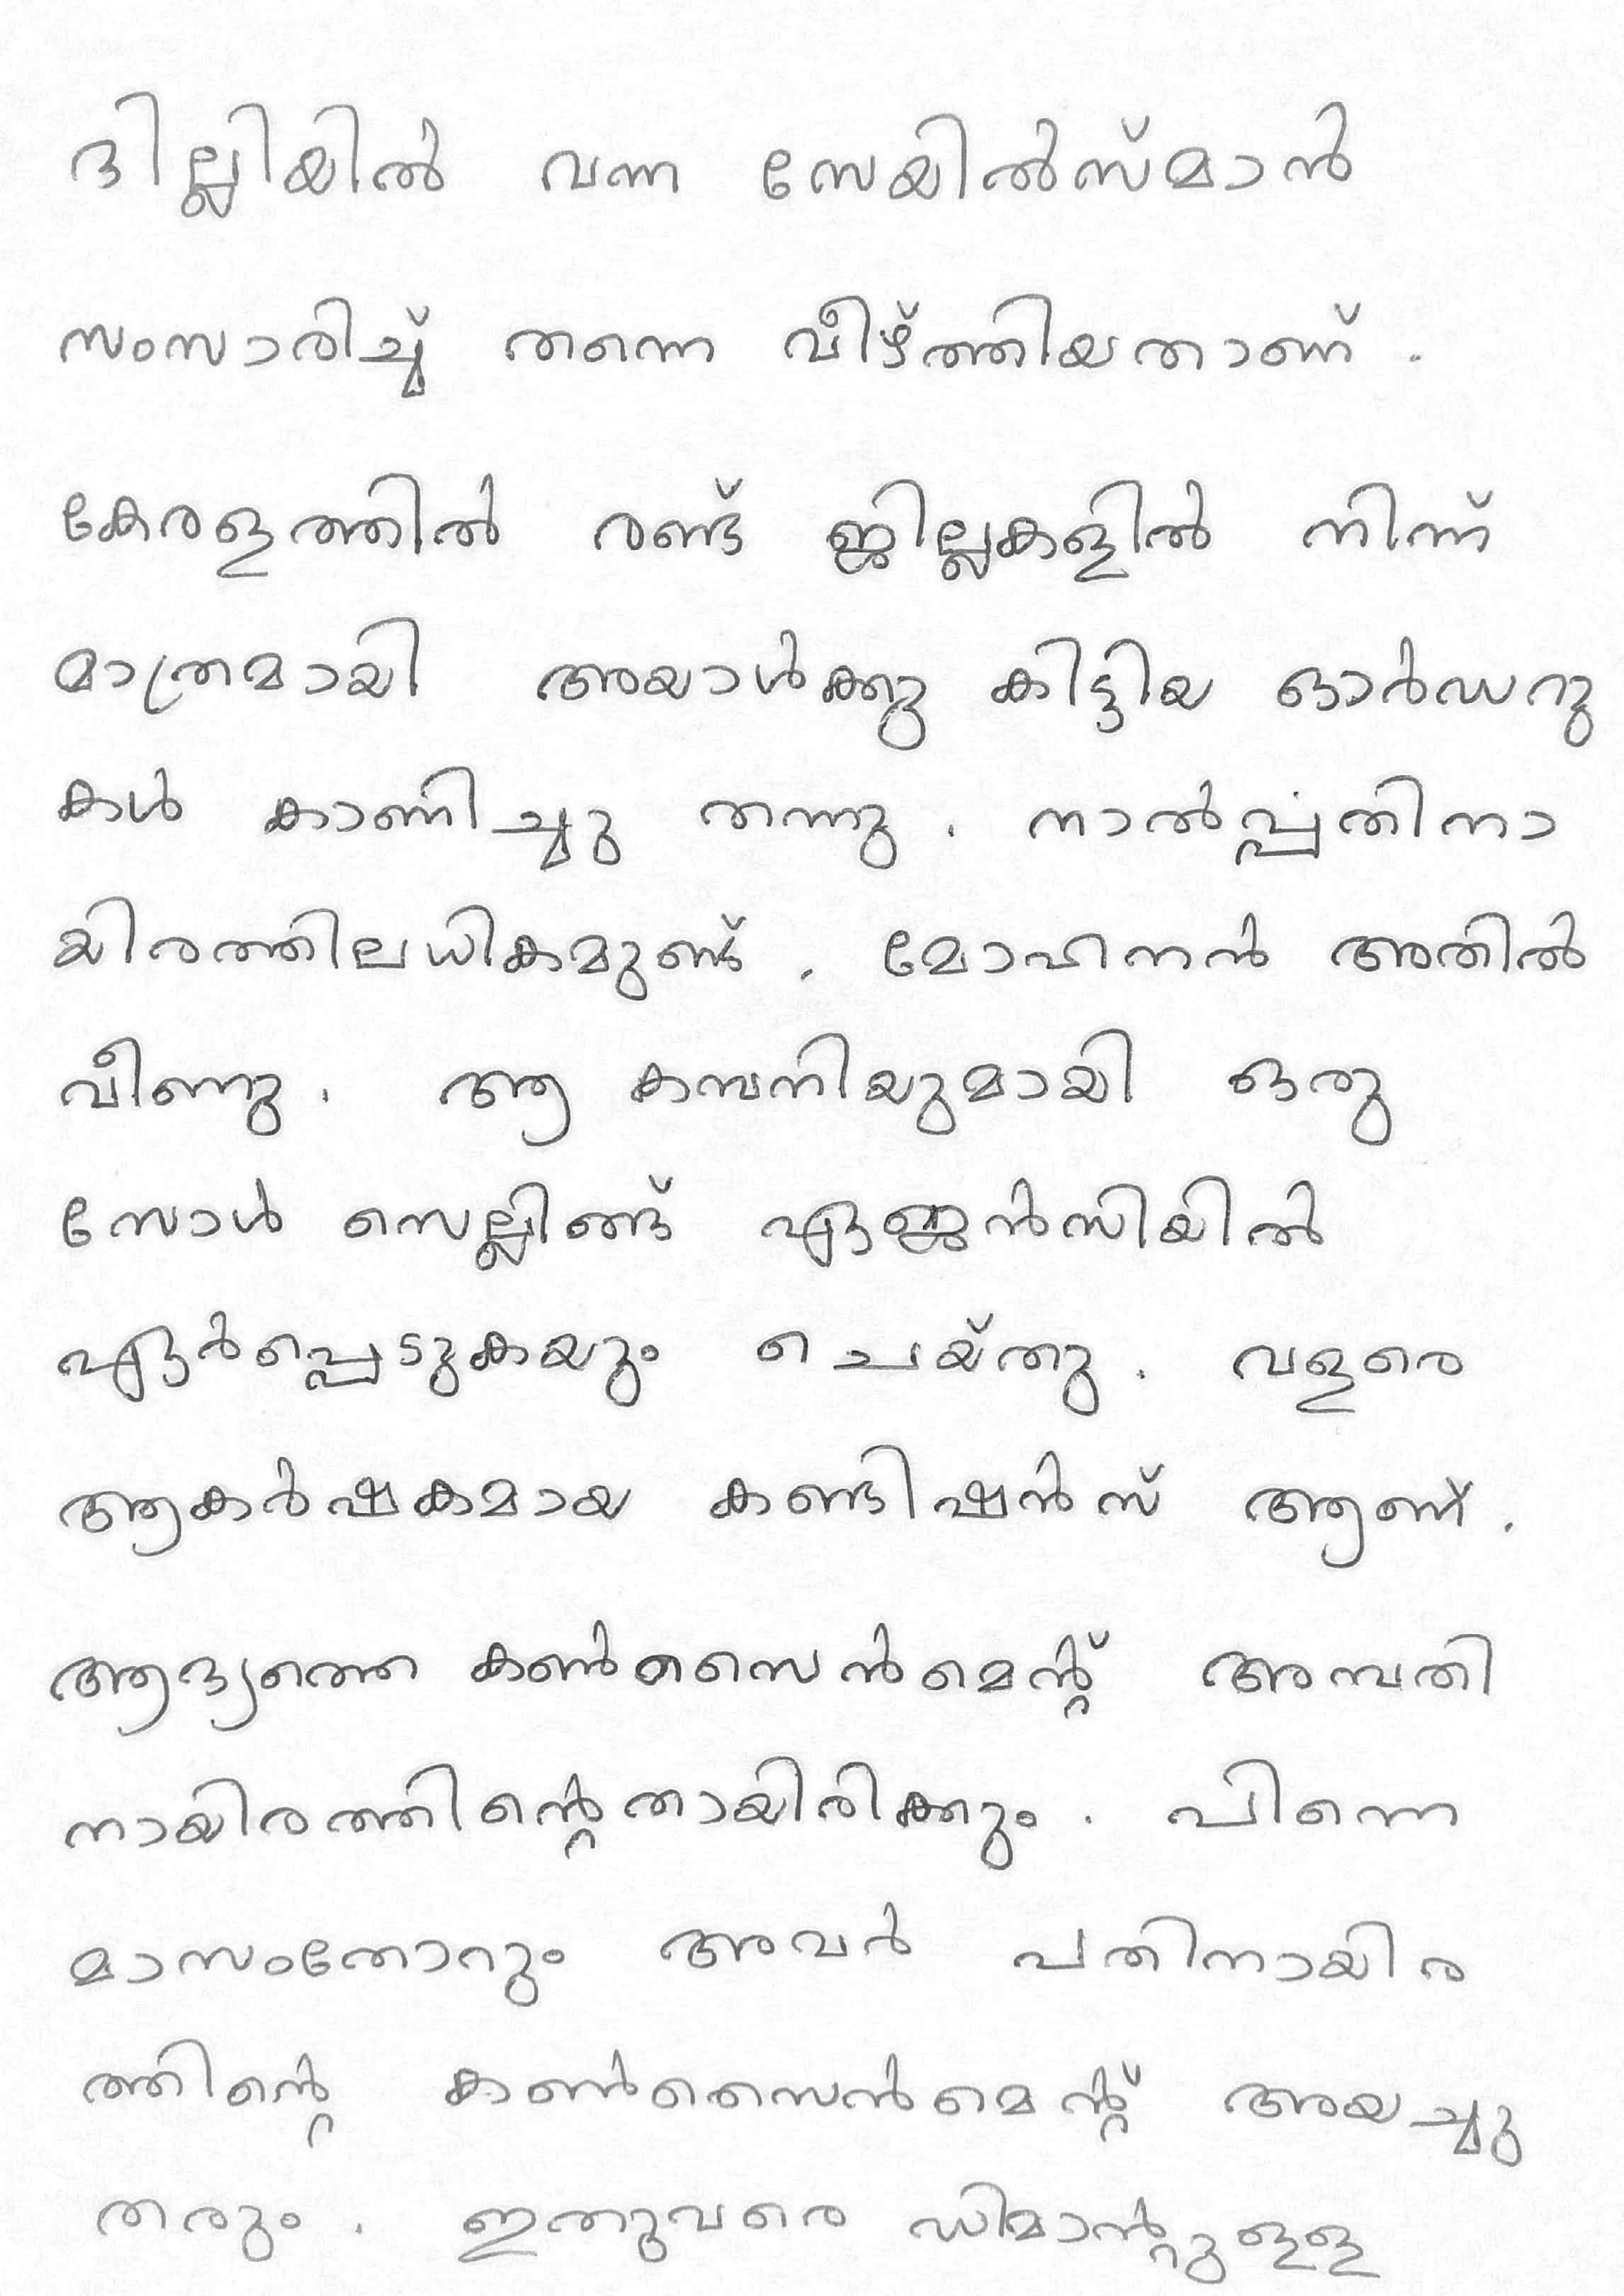 ദില്ലിയിൽ വന്ന സേയിൽസ്മാൻ
സംസാരിച്ച് തന്നെ വീഴ്ത്തിയതാണ്.
കേരളത്തിൽ രണ്ട് ജില്ലകളിൽ നിന്ന്
മാത്രമായി അയാൾക്കു കിട്ടിയ ഓർഡറു
കൾ കാണിച്ചു തന്നു. നാൽപ്പതിനാ
യിരത്തിലധികമുണ്ട്. മോഹനൻ അതിൽ
വീണു. ആ കമ്പനിയുമായി ഒരു
സോൾ സെല്ലിങ്ങ് ഏജൻസിയിൽ
ഏർപ്പെടുകയും ചെയ്തു. വളരെ
ആകർഷകമായ കണ്ടിഷൻസ് ആണ്.
ആദ്യത്തെ കൺസൈൻമെന്റ് അമ്പതി
നായിരത്തിന്റെതായിരിക്കും. പിന്നെ
മാസംതോറും അവർ പതിനായിര
ത്തിന്റെ കൺസൈൻമെന്റ് അയച്ചു
തരും. ഇതുവരെ ഡിമാന്റുള്ള